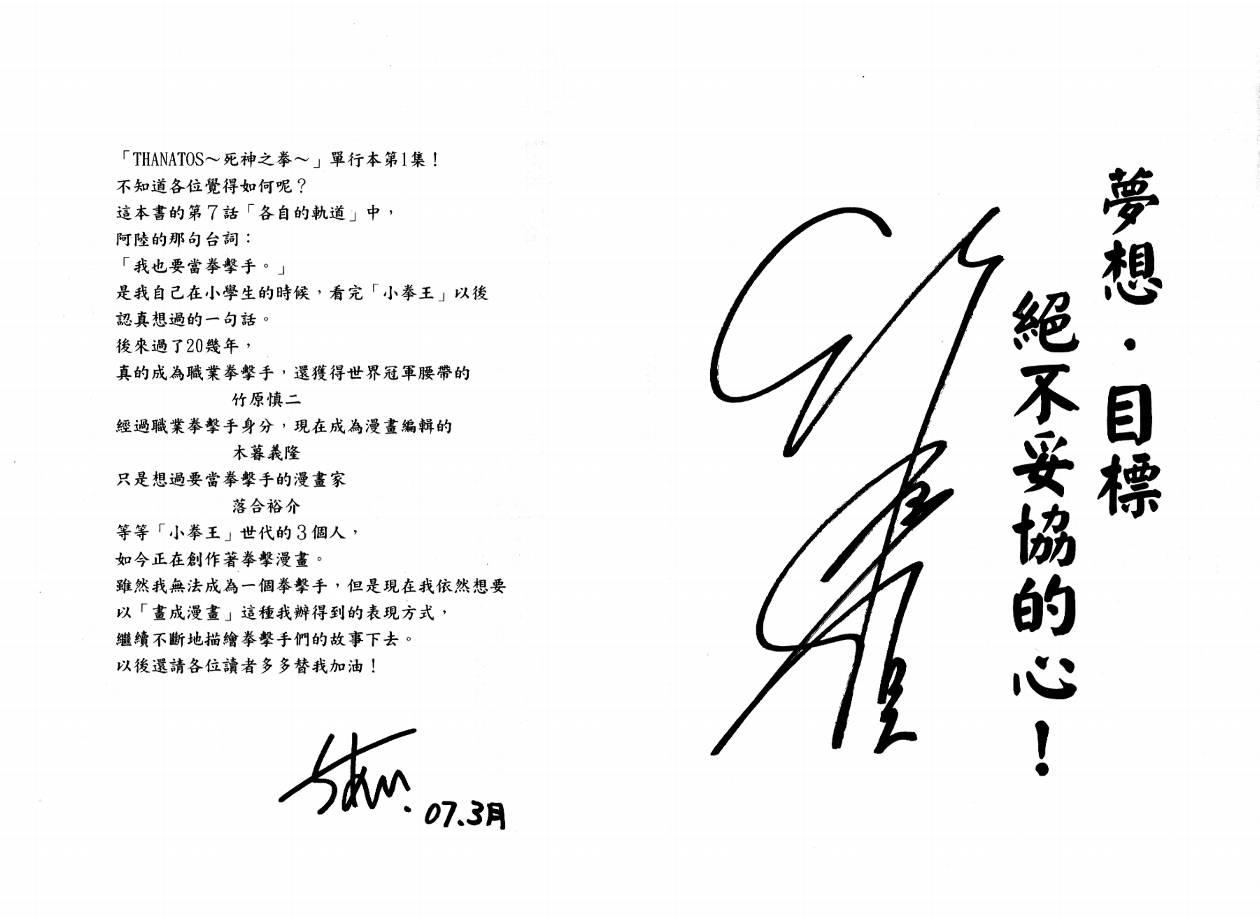 夢想・目標
絕不妥協的心！
「THANATOS～死神之拳～」單行本第1集！
不知道各位覺得如何呢？
這本書的第７話「各自的軌道」中，
阿陸的那句台詞：
「我也要當拳擊手。」
是我自己在小學生的時候，看完「小拳王」以後
認真想過的一句話。
後來過了20幾年，
真的成為職業拳擊手，還獲得世界冠軍腰帶的
竹原慎二
經過職業拳擊手身分，現在成為漫畫編輯的
木暮義隆
只是想過要當拳擊手的漫畫家
落合裕介
等等「小拳王」世代的３個人，
如今正在創作著拳擊漫畫。
雖然我無法成為一個拳擊手，但是現在我依然想要
以「畫成漫畫」這種我辦得到的表現方式，
繼續不斷地描繪拳擊手們的故事下去。
以後還請各位讀者多多替我加油！
07.3月